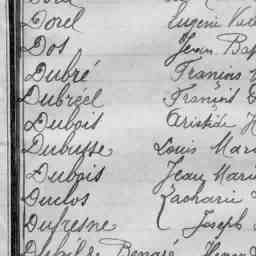 Dorel Eugène
Dos Jean Bap
Dubré François
Dubreel François
Dubois Aristide H
Dubusse Louis Mar
Dubois Jean Mari
Duclos Zacharie
Dufresne Joseph
Benard Henri